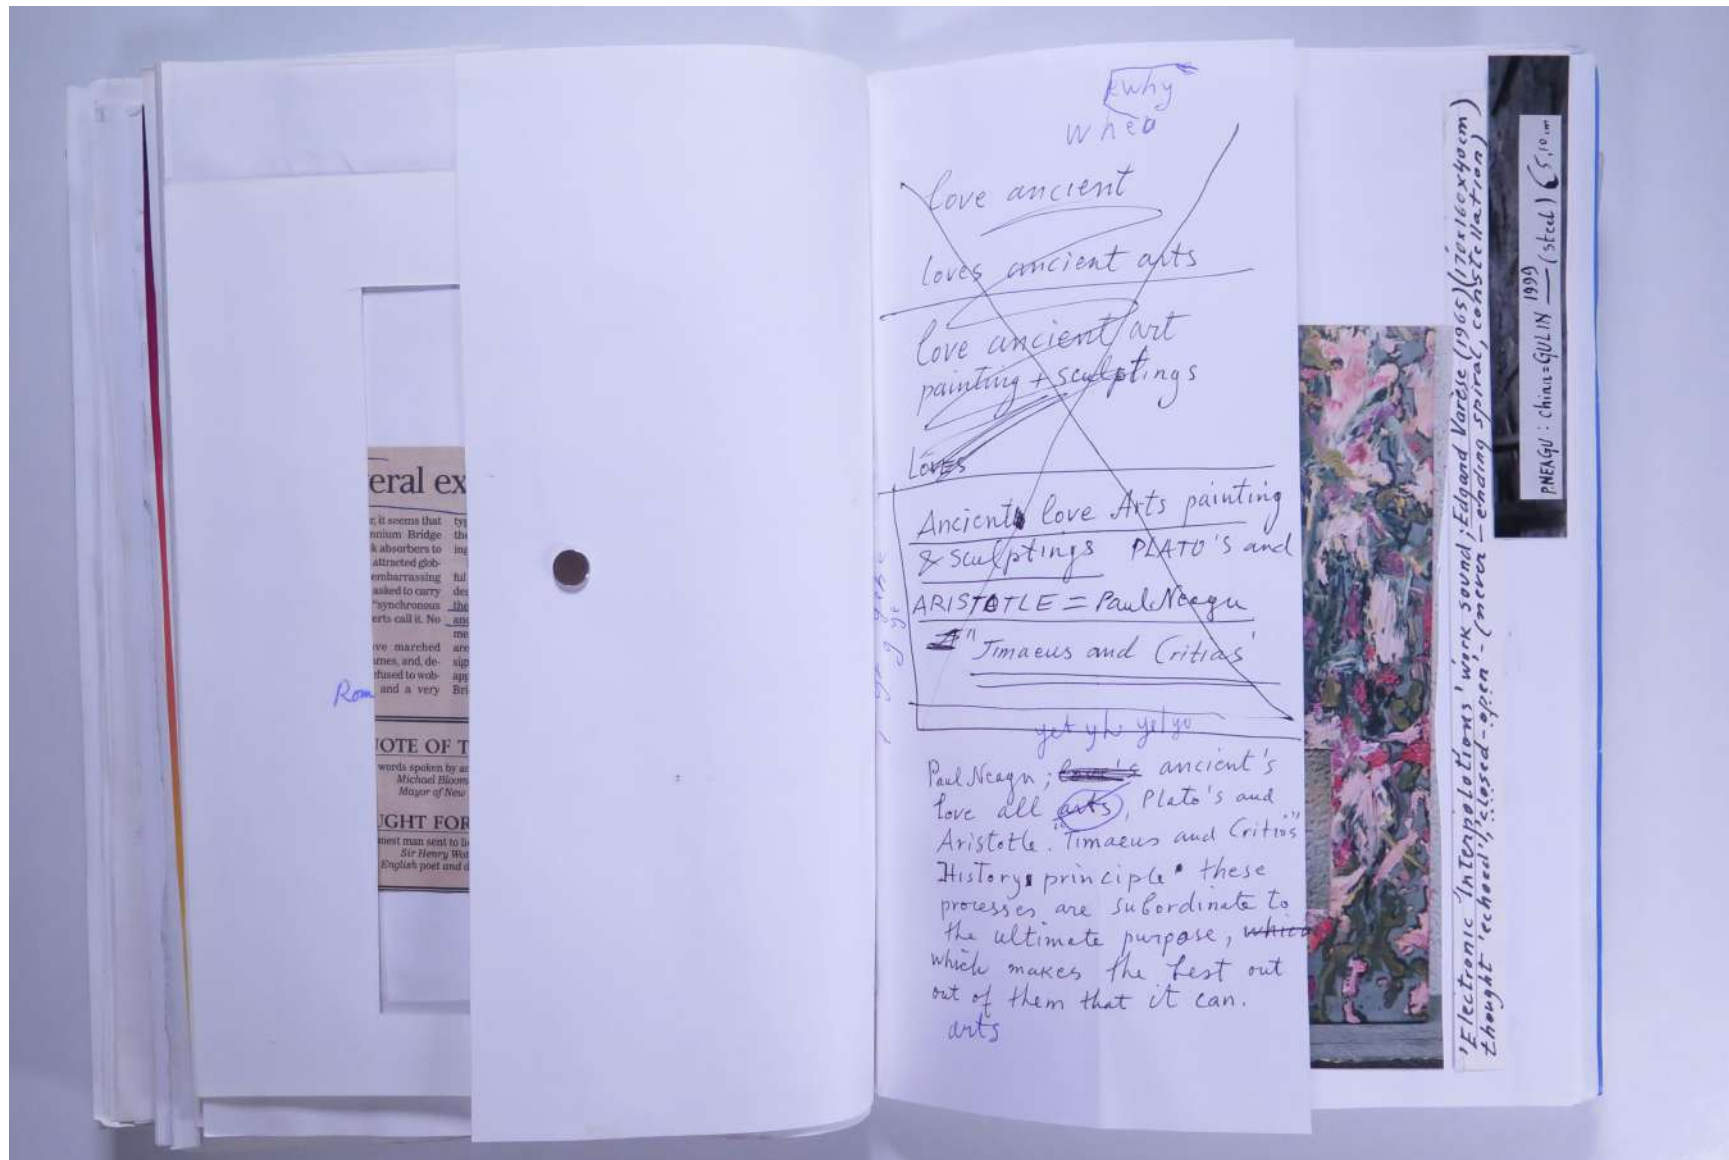 eral ex
r, it seems that
nnium Bridge
k absorbers to
attracted glob-
embarrassing
asked to carry
"synchronous
erts call it. No
ve marched
umes, and, de-
efused to wob-
and a very
typ
the
ing
ful
des
the
and
me
are
sig
app
Bri
Rom
OTE OF T
words spoken by an
Michael Bloom
Mayor of New
UGHT FOR
nest man sent to lie
Sir Henry Wot
English poet and d
why
when
love ancient
loves ancient arts
love ancient art
painting + sculptings
Loves
Ancient love Arts painting
& Sculptings PLATO'S and
ARISTOTLE = Paul Neagu
" Timaeus and Critias'
yet yh yet yo
Paul Neagu; love's ancient's
love all arts, Plato's and
Aristotle. "Timaeus and Critias"
History principle these
processes are subordinate to
the ultimate purpose, which
which makes the best out
out of them that it can.
arts
'Electronic 'Interpolations' work sound; Edgard Varèse (1965) (170x160x40cm)
thought 'echoed', 'closed-open' - (never-ending spiral, constellation)
P.NEAGU: China=GULIN 1999 (steel)